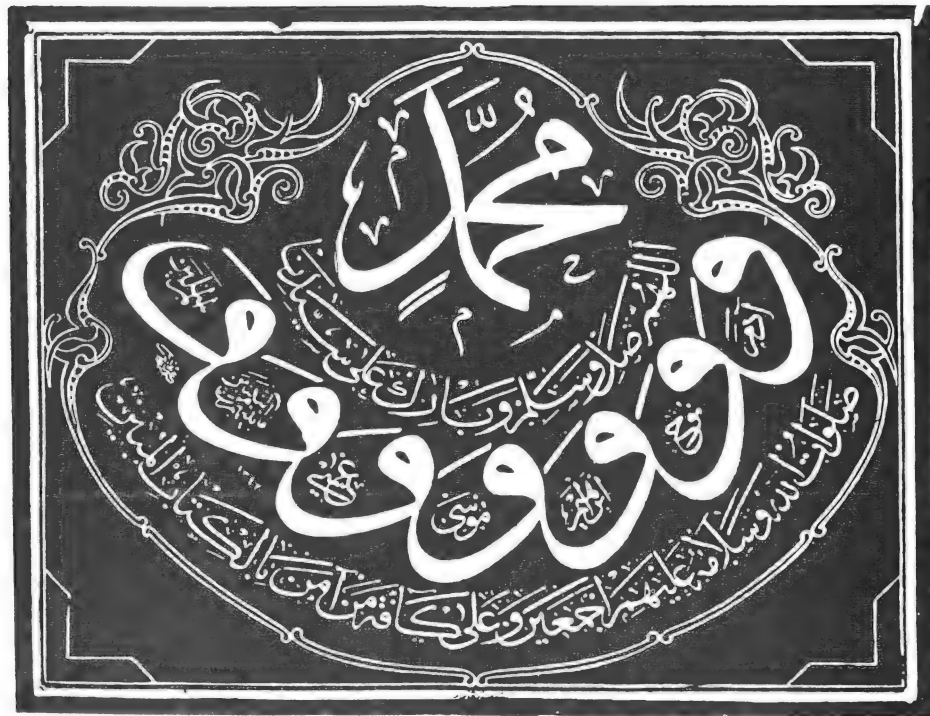 محمد
اللهم صل وسلم وبارك على سيدنا
و و و و و و و
آدم
نوح
ابراهيم
موسى
عيسى
صلوات الله وسلامه عليهم اجمعين وعلى كافة من آمن بالكتاب المبين